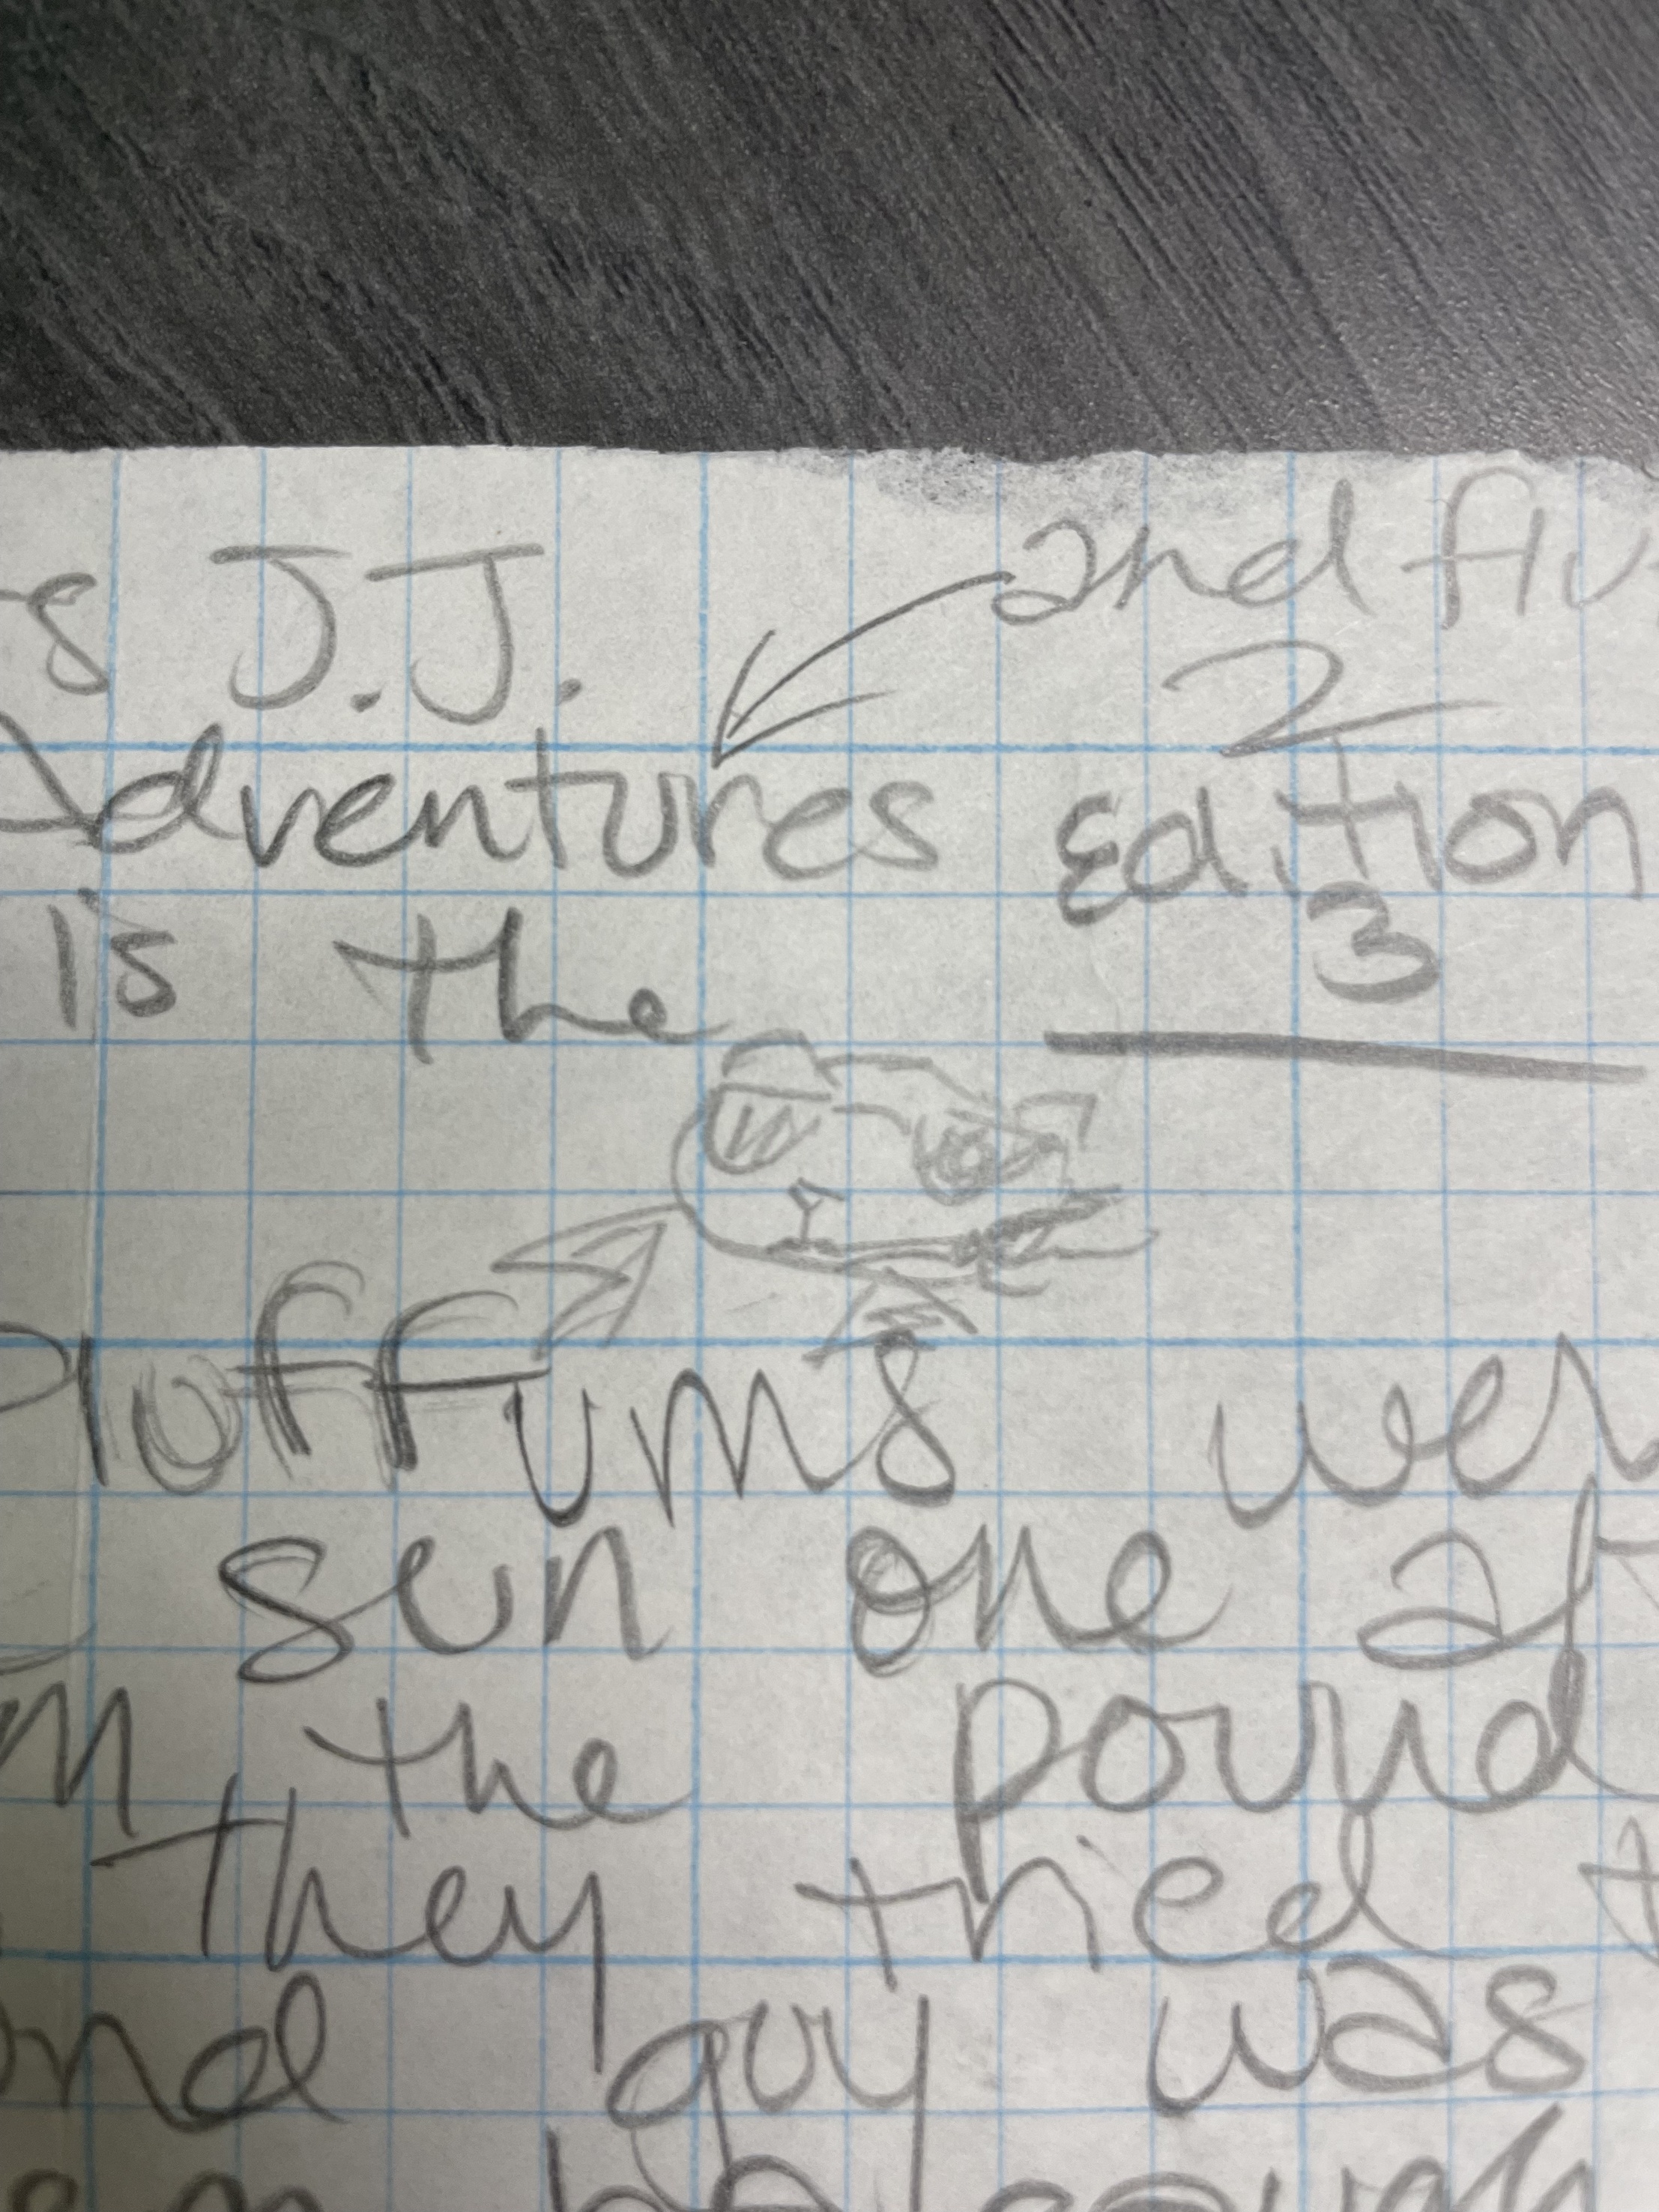 s J.J. and flu
2
Adventures Edition
is the 3
Pluffums wer
sun one af
m the pound
They tried t
ond guy was